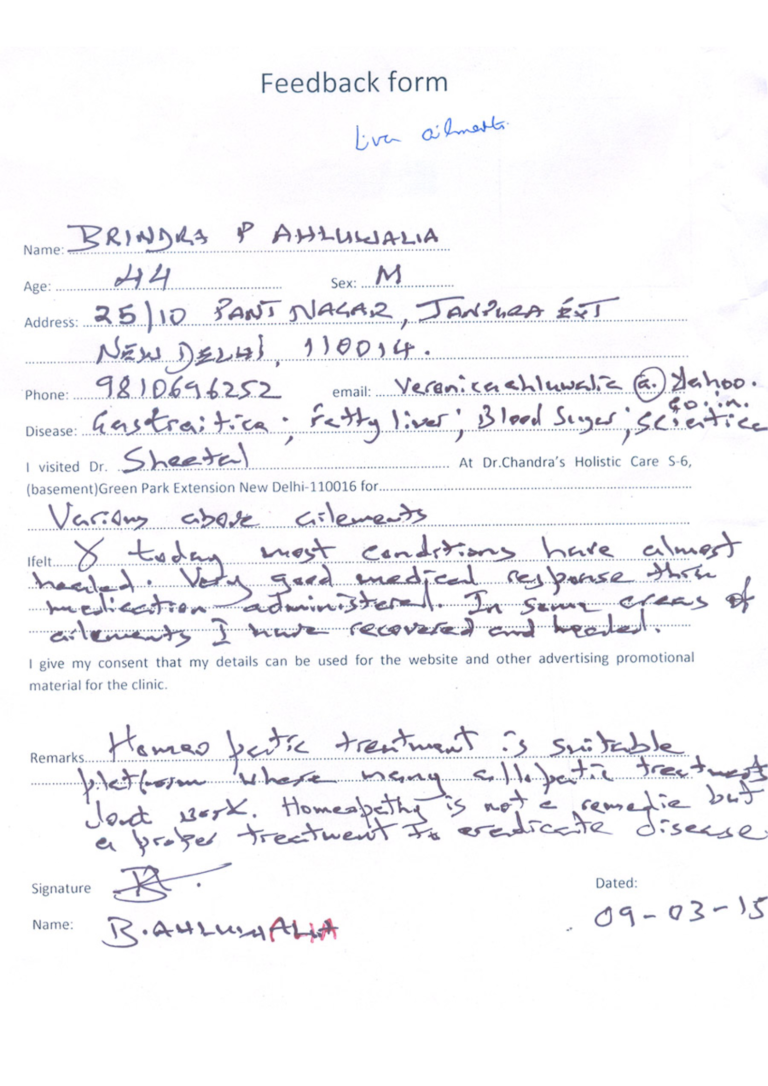 Feedback form
Liver ailments
Name: BRINDRA P AHLUWALIA
Age: 44 Sex: M
Address: 25/10 PANT NAGAR, JANPURA EXT
NEW DELHI, 110014.
Phone: 9810696252 email: Veronicaahluwalia @ Yahoo.
co.in.
Disease: Gastraitica; Fatty liver; Blood Suger; Sciatica
I visited Dr. Sheetal At Dr.Chandra's Holistic Care S-6,
(basement)Green Park Extension New Delhi-110016 for
Various above ailements
Ifelt today most conditions have almost
healed. Very good medical response thru
medication administered. In some areas of
ailements I have recovered and healed.
I give my consent that my details can be used for the website and other advertising promotional
material for the clinic.
Remarks Homeo patic treatment is suitable
platform where many allopatic treatments
dont work. Homeopathy is not a remedie but
a proper treatment to eradicate disease
Signature Dated:
Name: B. AHLUWALIA 09-03-15